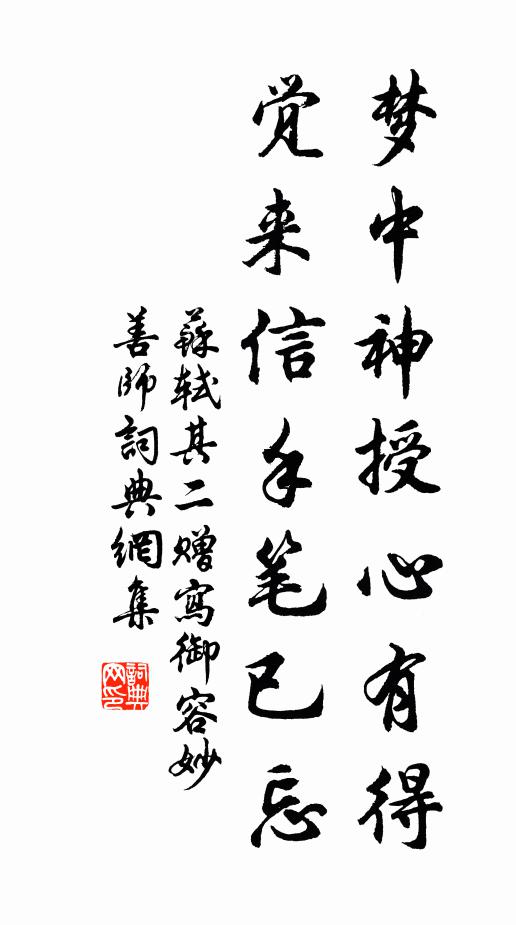 梦中神授心有得
觉来信手笔已忘
蘇軾其二赠寫御容妙
善師詞典網集
詞典
网印